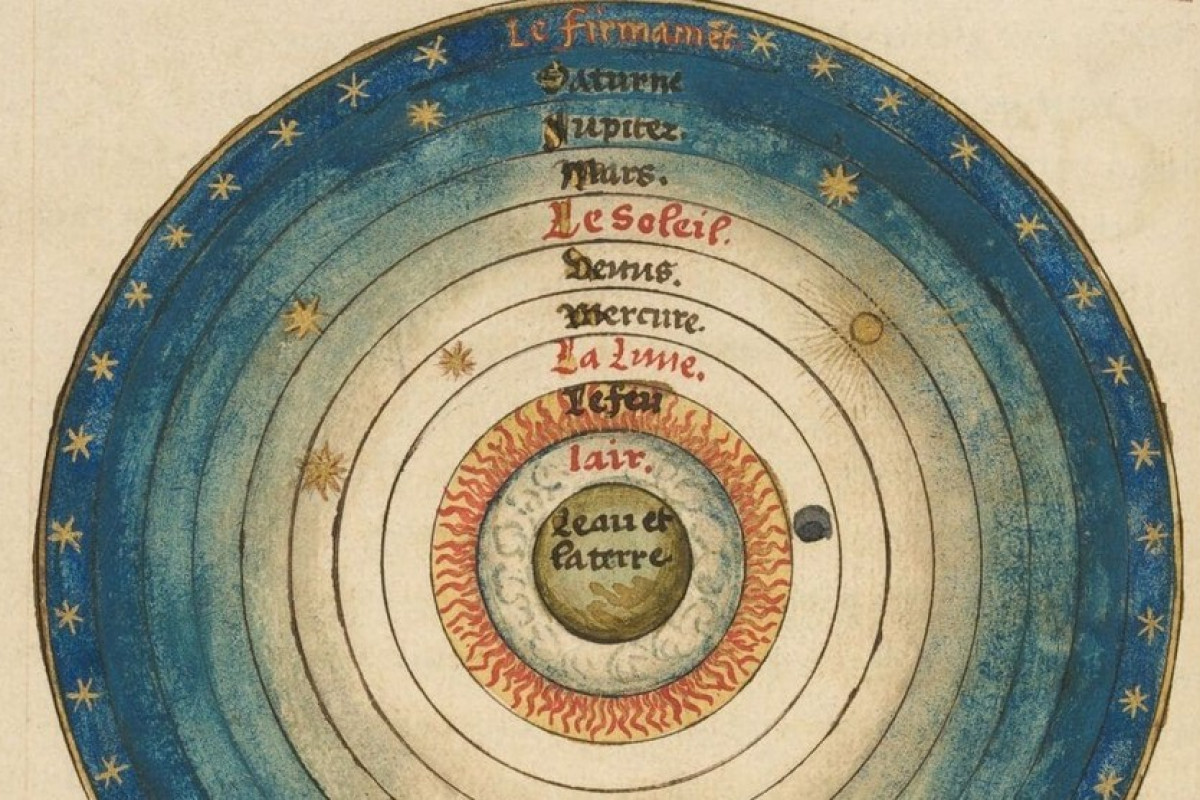 Le firmamēt
Saturne
Jupiter.
Mars.
Le Soleil.
Venus.
Mercure.
La Lune.
Le feu
lair.
Leau et
la terre